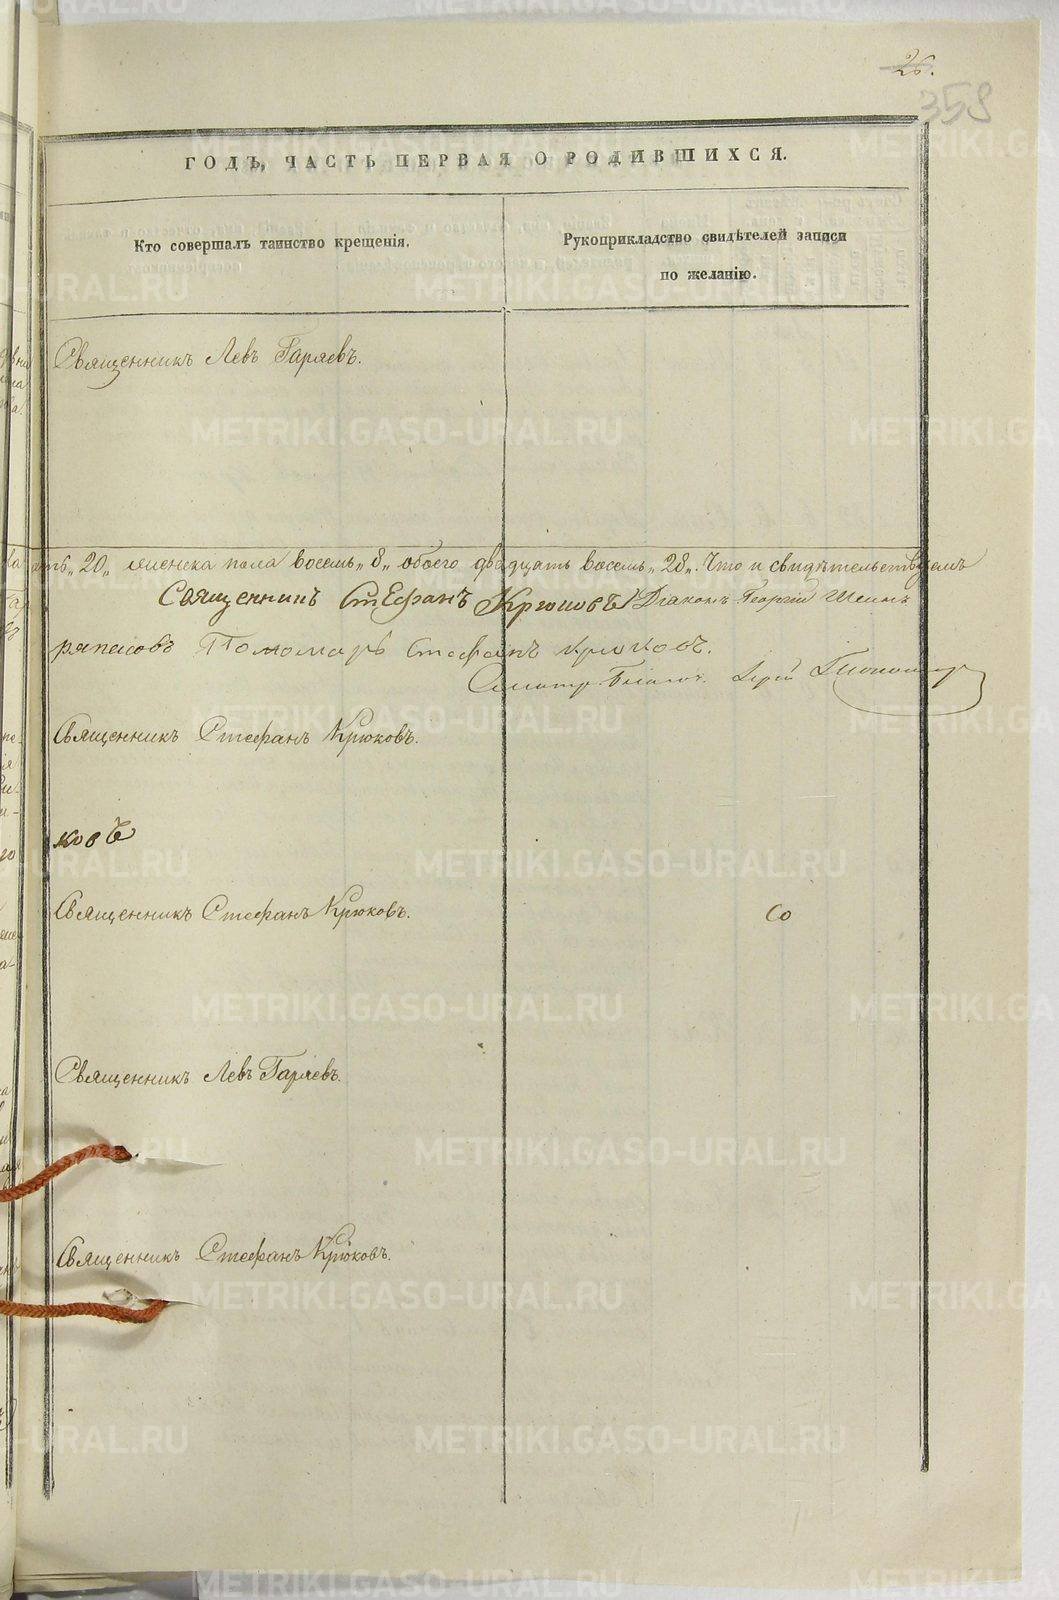 26.
358
ГОДЪ, ЧАСТЬ ПЕРВАЯ О РОДИВШИХСЯ.
Кто совершалъ таинство крещенія.
Рукоприкладство свидѣтелей записи
по желанію.
Священникъ Левъ Гаряевъ.
ать „20„ женска пола восемь „8„ обоего двадцать восемь „28„. Что и свидѣтельствуемъ
Священникъ Стефанъ Крюковъ Діаконъ Георгій
Пономарь Стефанъ Крюковъ.
Священникъ Стефанъ Крюковъ.
ковъ
Священникъ Стефанъ Крюковъ.
Со
Священникъ Левъ Гаряевъ.
Священникъ Стефанъ Крюковъ.
METRIKI.GASO-URAL.RU